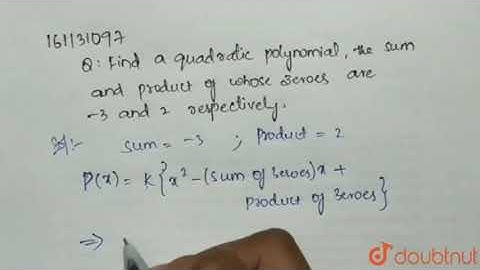 161131097
Q: Find a quadratic polynomial, the sum
and product of whose zeroes are
-3 and 2 respectively.
Sol:- Sum = -3 ; Product = 2
P(x) = K{x² - (Sum of zeroes)x +
Product of zeroes}
⇒
doubtnut